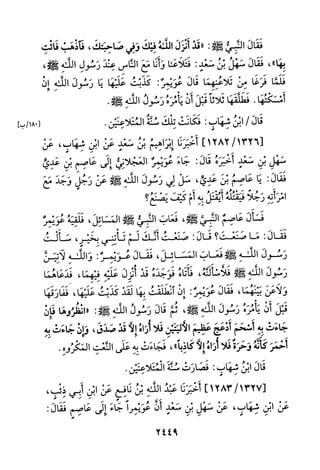 فَقَالَ النَّبِيُّ ﷺ: «قَدْ أَنْزَلَ اللَّهُ فِيْكَ وَفِي صَاحِبَتِكَ، فَاذْهَبْ فَائْتِ
بِهَا»، فَقَالَ سَهْلُ بْنُ سَعْدٍ: فَتَلَاعَنَا وَأَنَا مَعَ النَّاسِ عِنْدَ رَسُولِ اللَّهِ ﷺ،
فَلَمَّا فَرَغَا مِنْ تَلَاعُنِهِمَا قَالَ عُوَيْمِرٌ: كَذَبْتُ عَلَيْهَا يَا رَسُولَ اللَّهِ إِنْ
أَمْسَكْتُهَا. فَطَلَّقَهَا ثَلَاثًا قَبْلَ أَنْ يَأْمُرَهُ رَسُولُ اللَّهِ ﷺ.
قَالَ / ابْنُ شِهَابٍ: فَكَانَتْ تِلْكَ سُنَّةُ الْمُتَلَاعِنَيْنِ. [١٨٠/ب]
[١٣٢٦/ ١٢٨٢] أَخْبَرَنَا إِبْرَاهِيمُ بْنُ سَعْدٍ عَنْ ابْنِ شِهَابٍ، عَنْ
سَهْلِ بْنِ سَعْدٍ أَخْبَرَهُ قَالَ: جَاءَ عُوَيْمِرٌ الْعَجْلَانِيُّ إِلَى عَاصِمِ بْنِ عَدِيٍّ
فَقَالَ: يَا عَاصِمُ بْنَ عَدِيٍّ، سَلْ لِي رَسُولَ اللَّهِ ﷺ عَنْ رَجُلٍ وَجَدَ مَعَ
امْرَأَتِهِ رَجُلًا فَيَقْتُلُهُ أَيُقْتَلُ بِهِ أَمْ كَيْفَ يَصْنَعُ؟
فَسَأَلَ عَاصِمٌ النَّبِيَّ ﷺ، فَعَابَ النَّبِيُّ ﷺ الْمَسَائِلَ، فَلَقِيَهُ عُوَيْمِرٌ
فَقَالَ: مَا صَنَعْتَ؟ قَالَ: صَنَعْتُ أَنَّكَ لَمْ تَأْتِنِي بِخَيْرٍ، سَأَلْتُ
رَسُولَ اللَّهِ ﷺ فَعَابَ الْمَسَائِلَ، فَقَالَ عُوَيْمِرٌ: وَاللَّهِ لَآتِيَنَّ
رَسُولَ اللَّهِ ﷺ فَلَأَسْأَلَنَّهُ، فَأَتَاهُ فَوَجَدَهُ قَدْ أُنْزِلَ عَلَيْهِ فِيْهِمَا، فَدَعَاهُمَا
وَلَاعَنَ بَيْنَهُمَا، فَقَالَ عُوَيْمِرٌ: إِنْ انْطَلَقْتُ بِهَا لَقَدْ كَذَبْتُ عَلَيْهَا، فَفَارَقَهَا
قَبْلَ أَنْ يَأْمُرَهُ رَسُولُ اللَّهِ ﷺ، ثُمَّ قَالَ رَسُولُ اللَّهِ ﷺ: «انْظُرُوهَا فَإِنْ
جَاءَتْ بِهِ أَسْحَمَ أَدْعَجَ عَظِيمَ الْأَلْيَتَيْنِ فَلَا أُرَاهُ إِلَّا قَدْ صَدَقَ، وَإِنْ جَاءَتْ بِهِ
أُحَيْمَرَ كَأَنَّهُ وَحَرَةٌ فَلَا أُرَاهُ إِلَّا كَاذِبًا»، فَجَاءَتْ بِهِ عَلَى النَّعْتِ الْمَكْرُوهِ.
قَالَ ابْنُ شِهَابٍ: فَصَارَتْ سُنَّةَ الْمُتَلَاعِنَيْنِ.
[١٣٢٧/ ١٢٨٣] أَخْبَرَنَا عَبْدُ اللَّهِ بْنُ نَافِعٍ عَنْ ابْنِ أَبِي ذِئْبٍ،
عَنْ ابْنِ شِهَابٍ، عَنْ سَهْلِ بْنِ سَعْدٍ أَنَّ عُوَيْمِرًا جَاءَ إِلَى عَاصِمٍ فَقَالَ:
٢٤٤٩